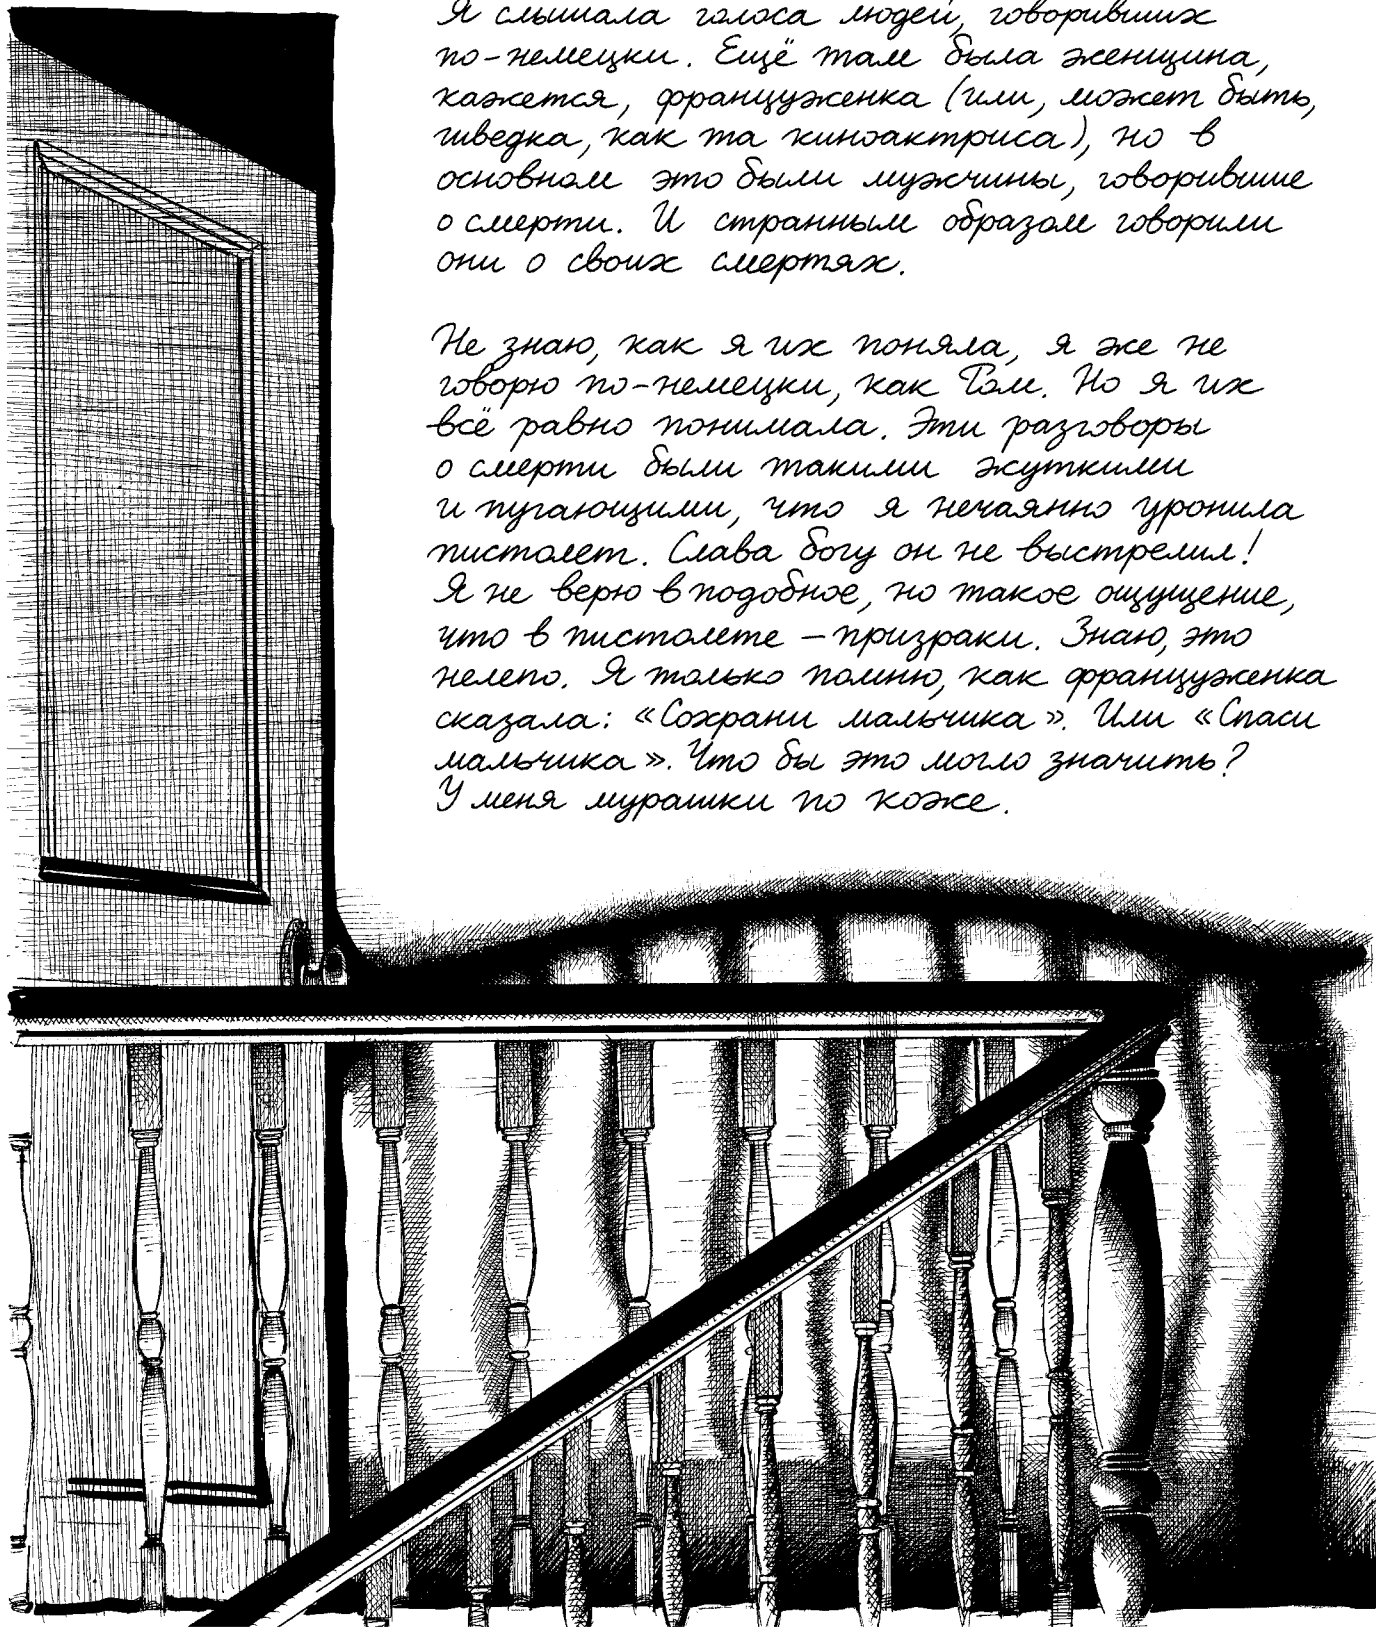 Я слышала голоса людей, говоривших
по-немецки. Ещё там была женщина,
кажется, француженка (или, может быть,
шведка, как та киноактриса), но в
основном это были мужчины, говорившие
о смерти. И странным образом говорили
они о своих смертях.
Не знаю, как я их поняла, я же не
говорю по-немецки, как Том. Но я их
всё равно понимала. Эти разговоры
о смерти были такими жуткими
и пугающими, что я нечаянно уронила
пистолет. Слава богу он не выстрелил!
Я не верю в подобное, но такое ощущение,
что в пистолете – призраки. Знаю, это
нелепо. Я только помню, как француженка
сказала: «Сохрани мальчика». Или «Спаси
мальчика». Что бы это могло значить?
У меня мурашки по коже.